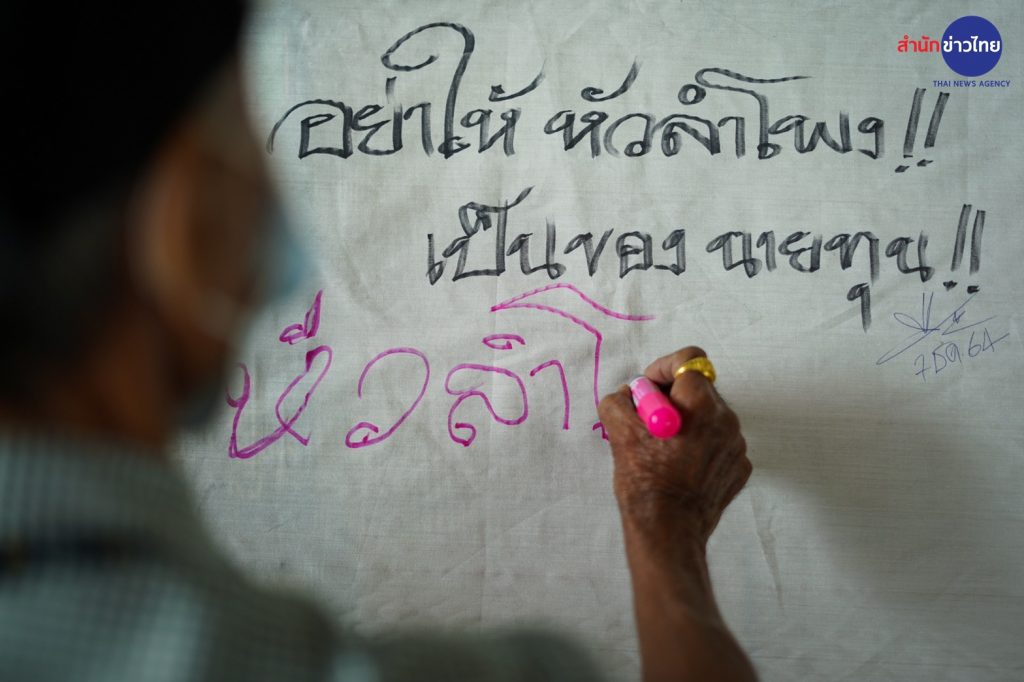 สำนักข่าวไทย
THAI NEWS AGENCY
อย่าให้ หัวลำโพง!!
เป็นของ นายทุน!!
7 ธค 64
หัวลำโ